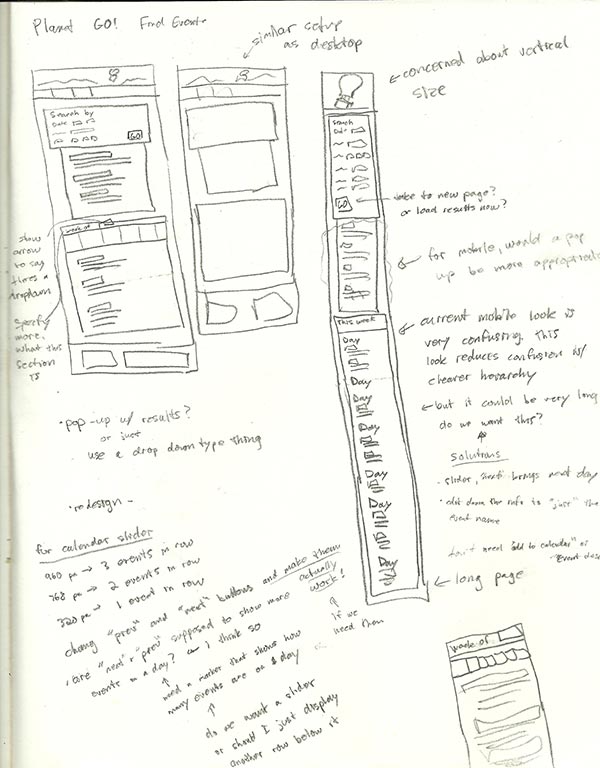 Planet GO! Find Events
similar setup
as desktop
concerned about vertical
size
Search by
Date
GO
week of
show
arrow
to say
theres a
dropdown
Specify
more
what this
section
is
Search
Date
GO
take to new page?
or load results now?
for mobile, would a pop
up be more appropriate
This week
Day
Day
Day
Day
Day
Day
current mobile look is
very confusing. this
look reduces confusion w/
clearer hierarchy
but it could be very long
do we want this?
solutions
- slider, brings next day
the info to "just" the
event name
need "add to calendar" or
long page
• pop-up w/ results?
or just
use a drop down type thing
• redesign -
for calendar slider
960 px → 3 events in row
768 px → 2 events in row
320 px → 1 event in row
chang "prev" and "next" buttons and make them
actually
work!
• are "next" + "prev" supposed to show more
events in a day? I think so
need a marker that shows how
many events are on a day
if we
need them
do we want a slider
or should I just display
another row below it
week of